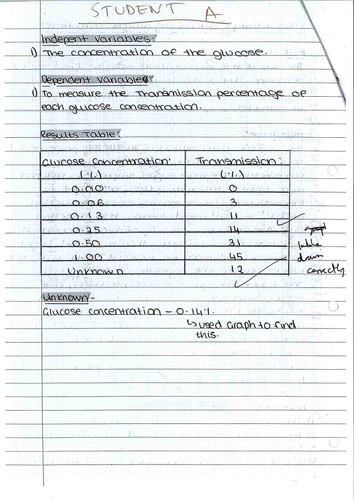 STUDENT A
Indepent Variables
1) The concentration of the glucose.
Dependent Variables
1) To measure the Transmission percentage of
each glucose concentration.
Results Table:
Glucose Concentration: Transmission:
(%) (%)
0.00 0
0.06 3
0.13 11
0.25 14
0.50 31 table
1.00 45 drawn
Unknown 12 correctly
Unknown -
Glucose concentration - 0.14%.
↳ used Graph to find
this.